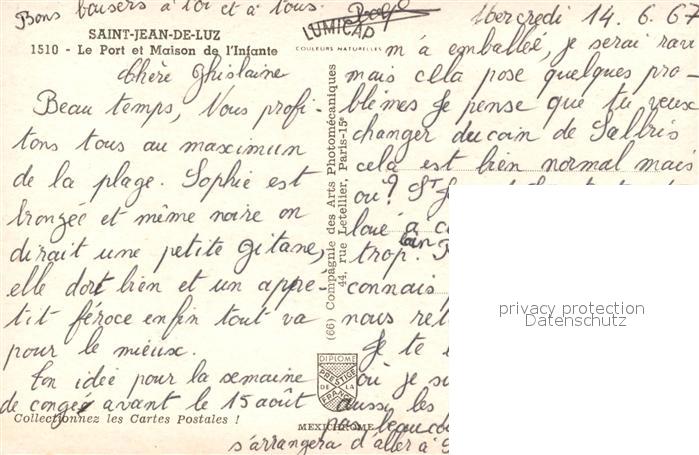 Bons baisers à toi et à tous.
SAINT-JEAN-DE-LUZ
1510 - Le Port et Maison de l'Infante
LUMICAP
COULEURS NATURELLES
Mercredi 14.6.67
Chère Ghislaine
Beau temps, Nous profi-
tons tous au maximun
de la plage. Sophie est
bronzée et même noire on
dirait une petite gitane,
elle dort bien et un appé-
tit féroce enfin tout va
pour le mieux.
Ton idée pour la semaine
de congée avant le 15 août
m'a emballée, je serai ravi
mais cela pose quelques pro-
blèmes Je pense que tu veux
changer du coin de Salbris
cela est bien normal mais
où? St
loué à
loin
trop.
connais
nous
Je te
où je
aussi les
pas beaucou
s'arrangera d'aller à
(66) Compagnie des Arts Photomécaniques
44, rue Letellier, Paris-15e
DIPLOME
PRESTIGE
DE LA
FRANCE
MEXICHROME
Collectionnez les Cartes Postales !
privacy protection
Datenschutz